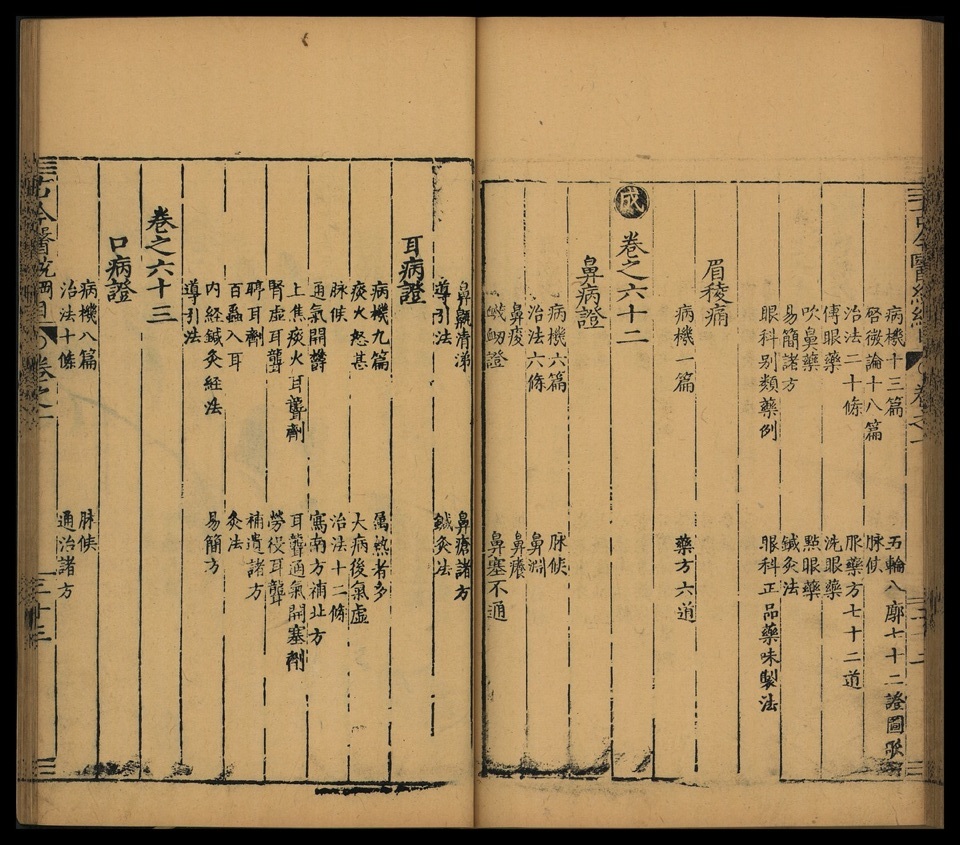 病機十三篇 五輪八廓七十二證圖歌
啓微論十八篇 脉候
治法二十條 服藥方七十二道
傅眼藥 洗眼藥
吹鼻藥 點眼藥
易簡諸方 鍼灸法
眼科别類藥例 眼科正品藥味製法
眉稜痛
病機一篇 藥方六道
成 卷之六十二
鼻病證
病機六篇 脉候
治法六條 鼻淵
鼻痠 鼻癢
衄證 鼻塞不通
鼻鼽清涕 鼻瘡諸方
導引法 鍼灸法
耳病證
病機九篇 属熱者多
痰火怒甚 大病後氣虛
脉候 治法十二條
通氣開聾 瀉南方補北方
上焦痰火耳聾劑 耳聾通氣開塞劑
腎虛耳聾 勞役耳聾
聤耳劑 補遺諸方
百蟲入耳 灸法
内經鍼灸經法 易簡方
導引法
卷之六十三
口病證
病機八篇 脉候
治法十條 通治諸方
古今醫統 卷之一